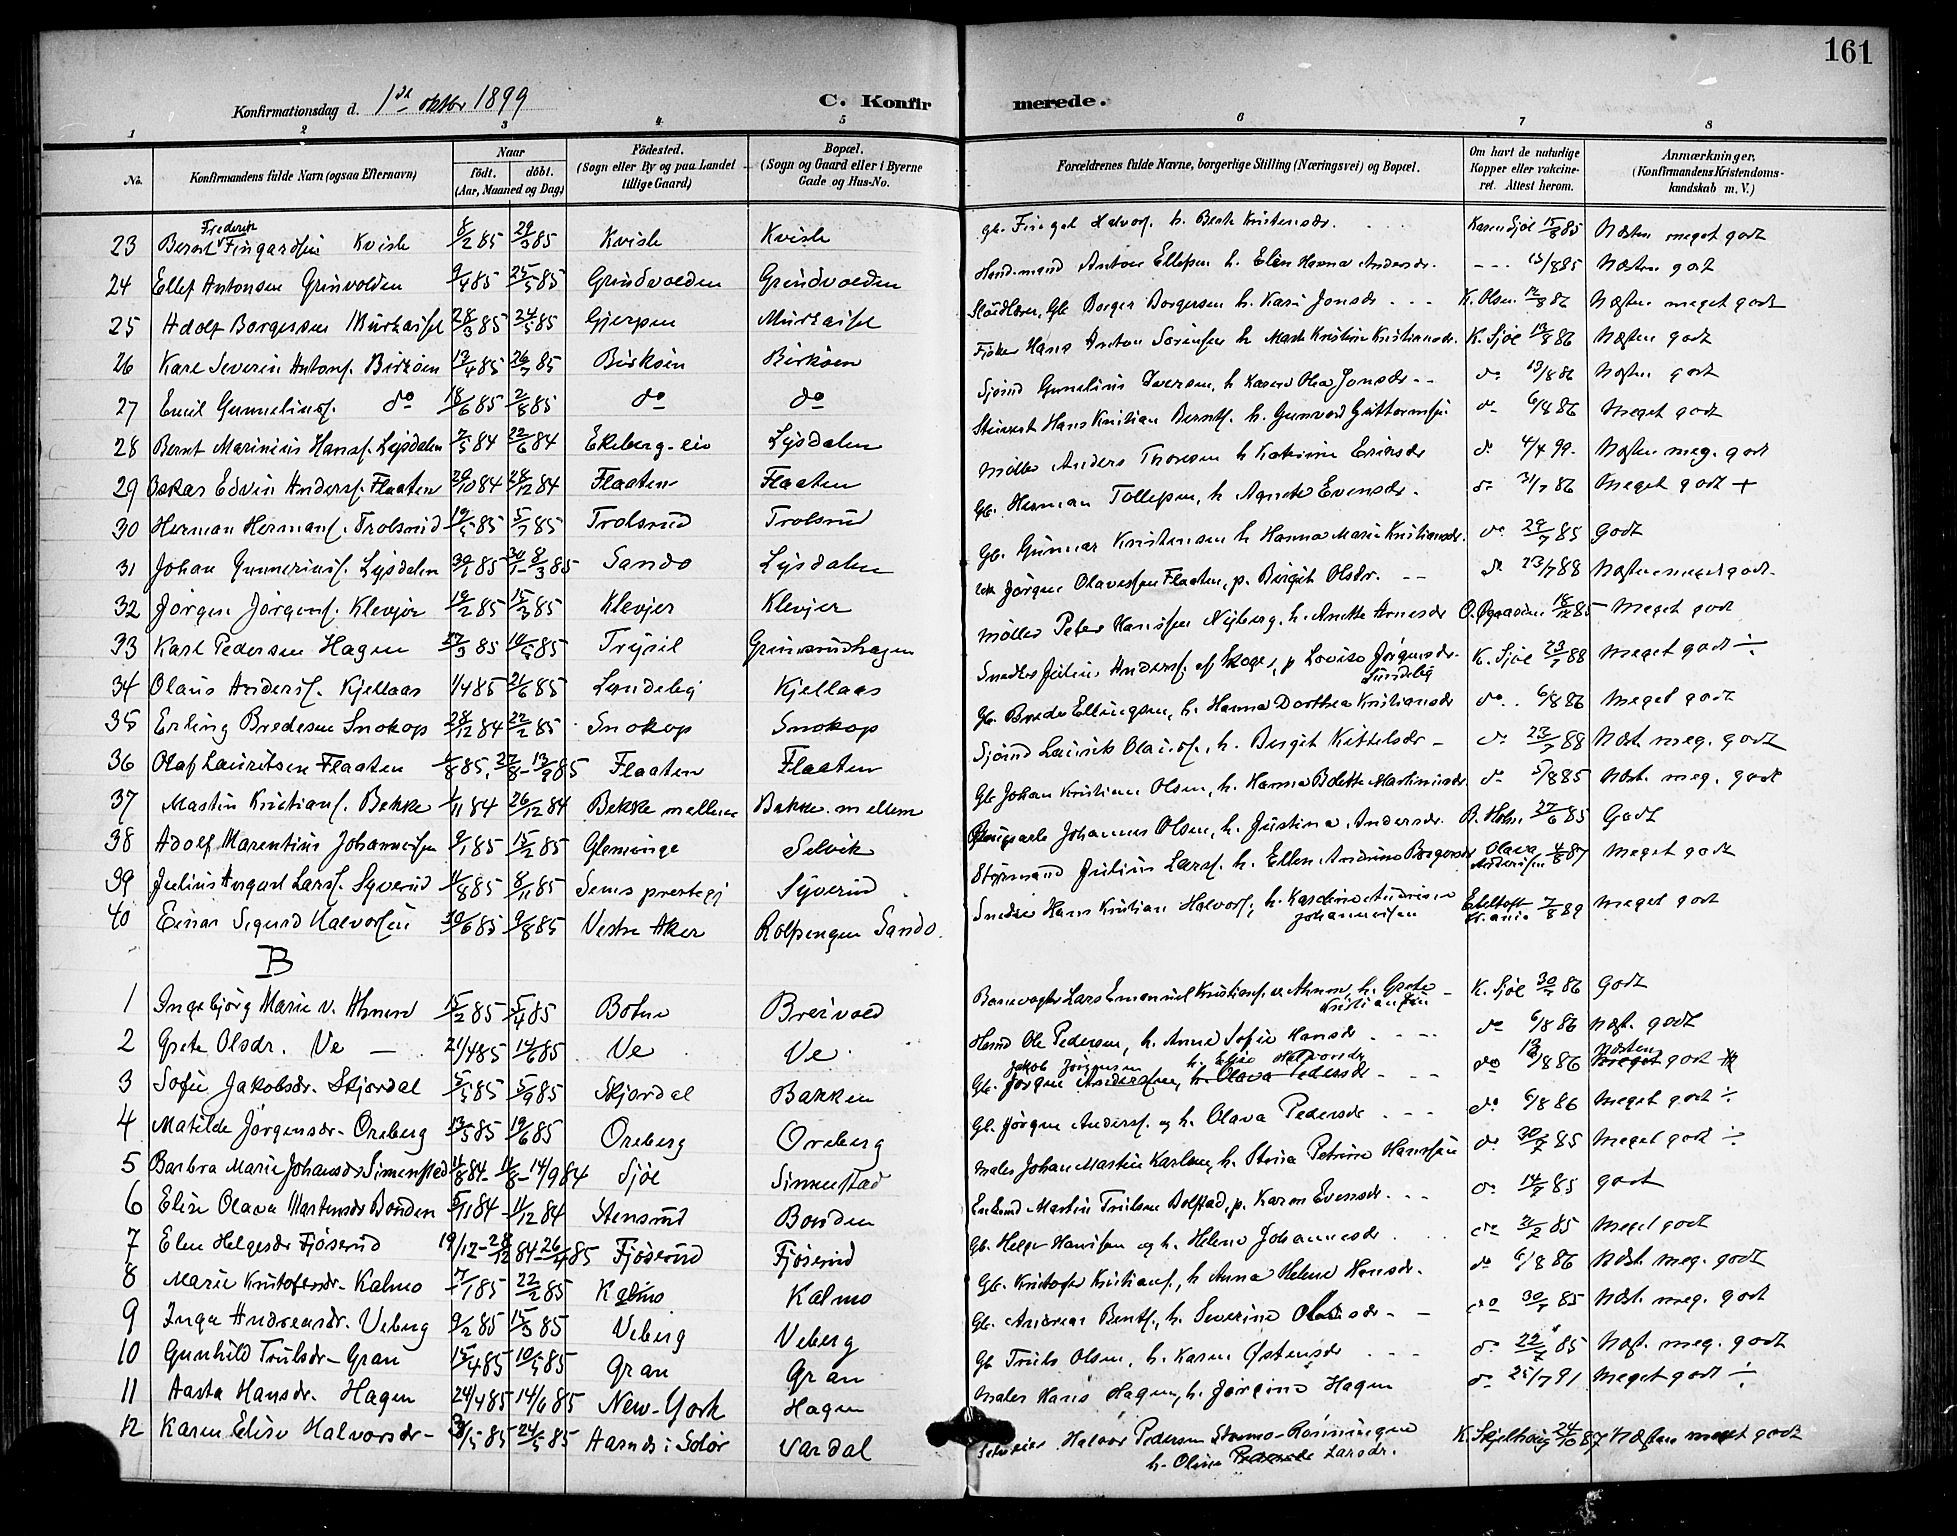 161
Konfirmationsdag d. 1ste oktbr 1899 C. Konfirmerede.
1 2 3 4 5 6 7 8
No. Konfirmandens fulde Navn (ogsaa Efternavn) Naar født. døbt. (Aar, Maaned og Dag) Födested. (Sogn eller By og paa Landet tillige Gaard) Bopæl. (Sogn og Gaard eller i Byerne Gade og Hus-No. Forældrenes fulde Navne, borgerlige Stilling (Næringsvei) og Bopæl. Om havt de naturlige Kopper eller vakcineret. Attest herom. Anmærkninger. (Konfirmandens Kristendomskundskab m. V.)
23 Bernt Frederik Kvisle 6/2 85 29/3 85 Kvisle Kvisle 15/8 85 Næsten meget godt
24 Ellef Antonsen Grinvolden 9/4 85 25/5 85 Grindvolden Grindvolden Anton Ellefsen h. Elen Hanna Andersdr. 13/8 85 Næsten godt
25 Adolf Borgersen 28/3 85 24/5 85 Gjerpen Gbr. Borger Borgersen h. Kari Jonsdr K. Olsen Næsten meget godt
26 Karl Severin Antons. Birkøen 13/4 85 26/7 85 Birkøen Birkøen Fisker Hans Anton Sørensen h. Kristine Kristiansdr. K. Sjøl 13/8 86 Næsten godt
27 Emil Gunneliuss. do 18/6 85 2/8 85 do do Gunnelius Iversen, h. Karen Olea Jonsdr do 13/8 86 Næsten godt
28 Bernt Marinius Hanss. Lysdalen 7/5 84 22/6 84 Ekeberg-eie Lysdalen Hans Kristian Bernts. h. Gunvor do 6/8 86 Meget godt
29 Oskar Edvin Anders. Flaaten 20/10 84 28/12 84 Flaaten Flaaten Møller Anders Thoresen h. Katrine Eriksdr do 4/4 99 Næsten meg. godt
30 Herman Hermans. Trolsrud 19/5 85 5/7 85 Trolsrud Trolsrud Gbr. Herman Tollefsen, h. Agnete Evensdr. do 31/7 86 Meget godt +
31 Johan Gunneriuss. Lysdalen 30/1 85 8/3 85 Sando Lysdalen Gbr. Gunnar Kristensen h. Hanna Marie Kristiansdr. do 29/7 85 Godt
32 Jørgen Jørgens. Klevjer 19/2 85 15/3 85 Klevjer Klevjer Jørgen Olavessen Flaaten, p. Birgit Olsdr. do 23/7 88 Næsten meget godt
33 Karl Pedersen Hagen 27/3 85 85 Trysil Grimsrudhagen Møller Peter Hanssen Nyberg, h. Anette Arnesdr 18/12 85 Meget godt
34 Olaus Anders. Kjellaas 1/4 85 21/6 85 Lundeby Kjellaas Julius Anders. af Skoger, p. Lovise Jørgensdr. Lundeby K. Sjøl 23/7 88 Meget godt ÷
35 Erling Bredesen Snokop 28/12 84 22/2 85 Snokop Snokop Gbr. Brede Ellingsen, h. Hanna Dorthea Kristiansdr do 6/8 86 Meget godt
36 Olaf Lauritsen Flaaten 8 85 13/9 85 Flaaten Flaaten Laurits Olauss., h. Birgit Kittelsdr do 23/7 88 Næst. meg. godt
37 Martin Kristians. Bekke 1/11 84 26/12 84 Bekke mellem Bakke mellem Gbr. Johan Kristian Olsen, h. Hanna Bolette Martinusdr do 5/8 85 Næst. meg. godt
38 Adolf Marentius Johannessen 9/1 85 15/2 85 Glemminge Selvik Johannes Olsen, h. Justina Andersdr. 27/6 85 Godt
39 Julius August Larss. Syverud 11/8 85 8/11 85 Sems prestegj Syverud Styrmand Julius Larss. h. Ellen Andrine Borgersdr Olava Andersen 4/8 87 Meget godt
40 Einar Sigurd Halvorsen 30/6 85 9/8 85 Vestre Aker Sando Hans Kristian Halvors., h. Johannessen 7/8 89 Meget godt
B
1 Ingebjørg Marie v. Ahnen 15/2 85 5/4 85 Botne Breivold Banevogter Lars Emanuel Kristians. v. Ahnen, h. Grete Kristiansen K. Sjøl 30/7 86 Godt
2 Grete Olsdr. Ve 21/4 85 14/6 85 Ve Ve Ole Pedersen, h. Anne Sofie Hansdr do 6/8 86 Næst. godt
3 Sofie Jakobsdr. Skjordal 5/5 85 5/9 85 Skjordal Bakken Gbr. Jakob Jørgensen h. Elise Halvorsdr do 13/8 86 Næsten godt
4 Matilde Jørgensdr. Oreberg 13/5 85 19/6 85 Oreberg Oreberg Gbr. Jørgen Anders. og h. Olava Pedersdr do 6/8 86 Meget godt ÷
5 Barbra Marie Johansdr Simenstad 14/9 84 Sjøl Simenstad Maler Johan Martin Karlsen, h. Petrine Hanssen do 30/7 85 Meget godt ÷
6 Elise Olava Martinsdr Bonden 5/11 84 11/12 84 Stensrud Bonden Martin Trulsen Bolstad, p. Karen Evensdr. do 14/9 85 godt
7 Elen Helgesdr Fjøserud 19/12 - 28/12 84 - 26/4 85 Fjøserud Fjøserud Gbr. Helge Hanssen og h. Helene Johannesdr do 85 Meget godt
8 Marie Kristofersdr. Kalmo 7/1 85 22/2 85 Kalmo Kalmo Gbr. Kristofer Kristians., h. Anna Helene Hansdr. do 6/8 86 Næst. meg. godt
9 Inga Andreasdr. Veberg 9/2 85 15/3 85 Veberg Veberg Gbr. Andreas Bents., h. Severine Olsdr do 30/7 85 Næst. meg. godt
10 Gunhild Trulsdr. Gran 15/4 85 10/5 85 Gran Gran Gbr. Truls Olsen, h. Karen Østensdr do 22/7 85 Næst. meg. godt
11 Aasta Hansdr. Hagen 24/4 85 14/6 85 New-York Hagen Maler Hans Hagen, h. Jørgine Hagen do 25/7 91 Meget godt ÷
12 Karen Elise Halvorsdr 85 24/5 85 Aasnes i Solør Vardal Halvor Pedersen h. Oline Larsdr. 24/10 87 Næsten meget godt